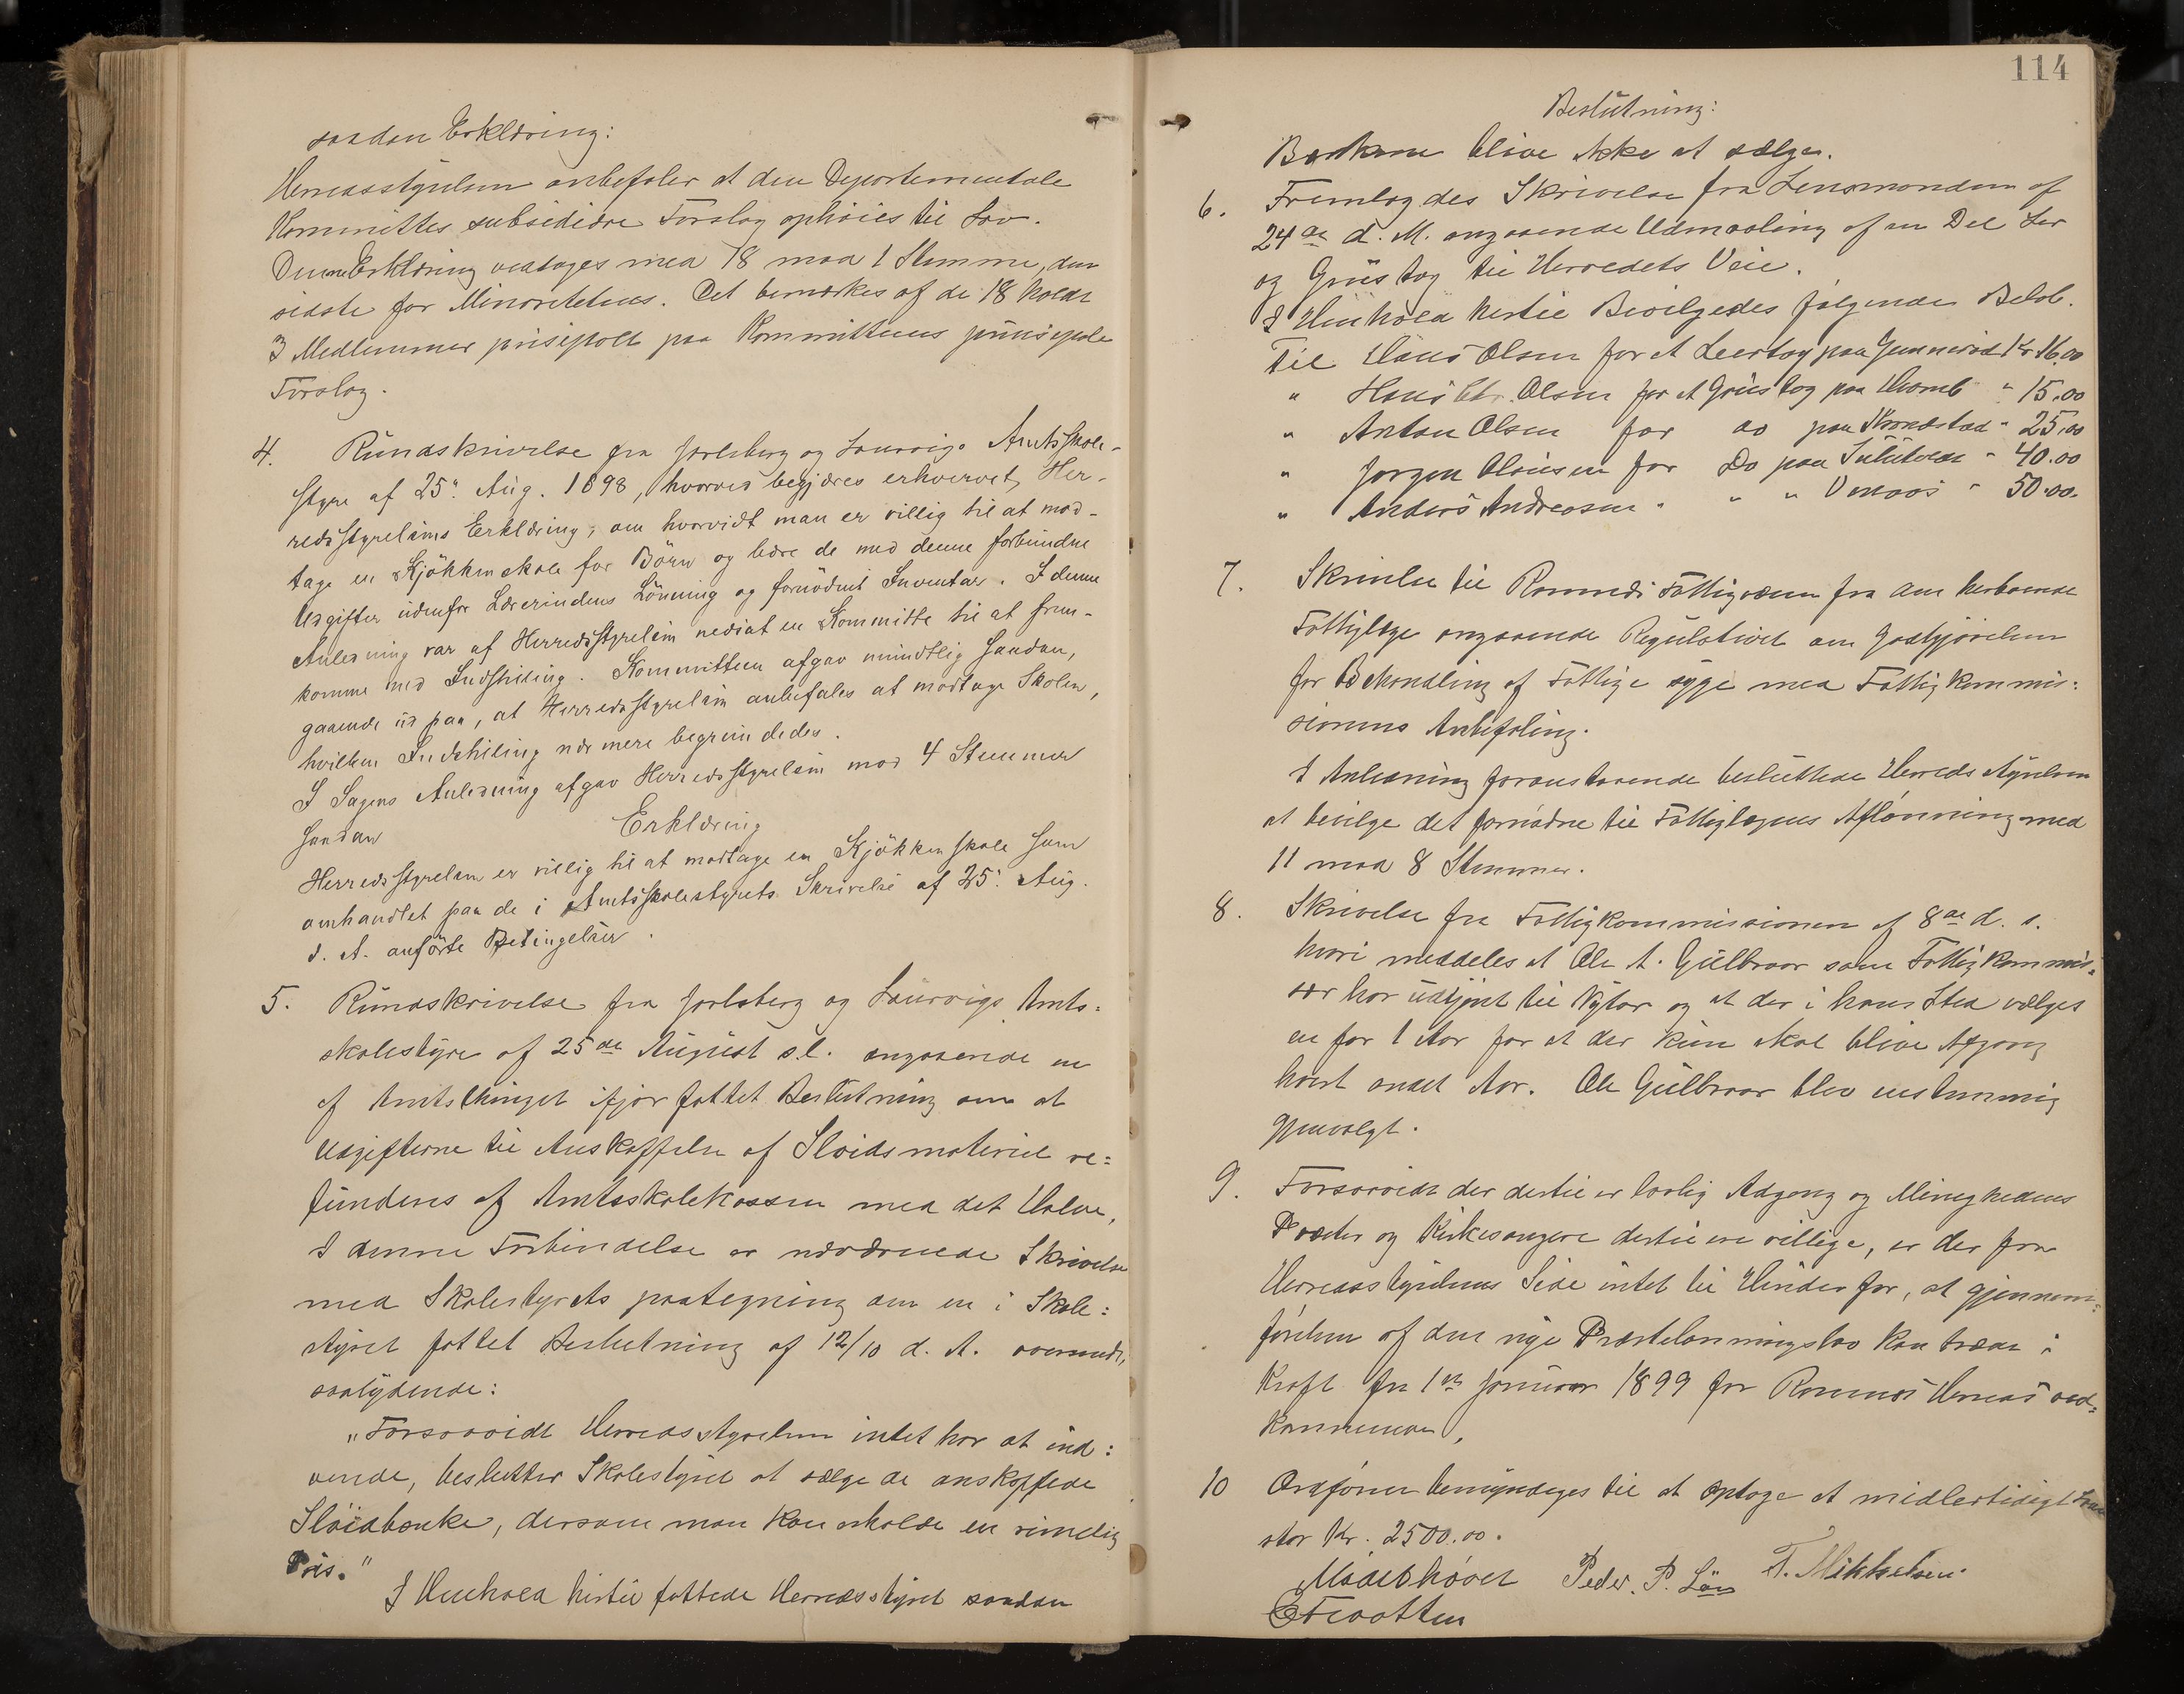 saadan Erklæring:
Herredsstyrelsen anbefaler at den Departementale
Kommittes subsidiære Forslag ophøies til Lov.
Denne Erklæring vedtages med 18 mod 1 Stemme, den
sidste for Minoritetens. Det bemærkes af de 18 holdt
3 Medlemmer prisipalt paa Kommitteens prinsipale
Forslag.
4. Rundskrivelse fra Jarlsberg og Laurvigs Amtsskole-
styre af 25de Aug. 1898, hvorved begjæres erhvervet Her-
redsstyrelsens Erklæring, om hvorvidt man er villig til at mod-
tage en Kjøkkenskole for Børn og bære de med denne forbundne
Udgifter udenfor Lærerindens Lønning og fornødent Inventar. I denne
Anledning var af Herredsstyrelsen nedsat en Kommitte til at frem-
komme med Indstilling. Kommitteen afgav mundtlig saadan,
gaaende ud paa, at Herredsstyrelsen anbefales at modtage Skolen,
hvilken Indstilling nærmere begrundedes.
I Sagens Anledning afgav Herredsstyrelsen mod 4 Stemmer
saadan Erklæring
Herredsstyrelsen er villig til at modtage en Kjøkkenskole som
omhandlet paa de i Amtsskolestyrets Skrivelse af 25. Aug.
d. A. anførte Betingelser.
5. Rundskrivelse fra Jarlsberg og Laurvigs Amts=
skolestyre af 25de August s.l. angaaende en
af Amtsthinget ifjor fattet Beslutning om at
Udgifterne til Anskaffelse af Sløidsmateriel re=
funderes af Amtsskolekassen med det Halve,
I denne Forbindelse er nærværende Skrivelse
med Skolestyrets paategning om en i Skole=
styret fattet Beslutning af 12/10 d. A. oversendt,
saalydende:
"Forsaavidt Herredsstyrelsen intet har at ind=
vende, beslutter Skolestyret at sælge de anskaffede
Sløidbænke, dersom man kan erholde en rimelig
Pris."
I Henhold hertil fattede Herredsstyret saadan
114
Beslutning:
Bænkene blive ikke at sælge.
6. Fremlagdes Skrivelse fra Lensmanden af
24de d. M. angaaende Udmaaling af en Del Ler
og Grustag til Herredets Veie.
I Henhold hertil Bevilgedes følgende Beløb.
Til Hans Olsen for et Leertag paa Gunnerød Kr 16.00
" Hans Chr. Olsen for et Grustag paa " 15.00
" Anton Olsen for do paa " 25,00
" Jørgen Olausen for Do paa " 40.00
" Anders Andreasen " " " " 50.00.
7. Skrivelse til Ramnæs Fattigvæsen fra den herboende
Fattiglæge angaaende Regulativet om Godtgjørelsen
for Behandling af Fattige syge med Fattigkommis=
sionens Anbefaling.
I Anledning foranstaaende besluttede Herredsstyrelsen
at bevilge det fornødne til Fattiglægens Aflønning med
11 mod 8 Stemmer.
8. Skrivelse fra Fattigkommissionen af 8de d. s.
hvori meddeles at Ole A. Gulbraar som Fattigkommis=
sær har udtjent til Nytaar og at der i hans Sted vælges
en for 1 Aar for at der kun skal blive Afgang
hvert andet Aar. Ole Gulbraar blev enstemmig
gjenvalgt.
9. Forsaavidt der dertil er lovlig Adgang og Menighedens
Præster og Kirkesangere dertil ere villige, er der fra
Herredsstyrelsens Side intet til Hinder for, at gjennem=
førelsen af den nye Præstelønningslov kan træde i
Kraft fra 1ste Januar 1899 for Ramnæs Herreds ved=
kommende,
10 Ordføreren bemyndiges til at optage et midlertidigt Laan
stor Kr. 2500.00.
Peder. P. Löv T. Mikkelsen